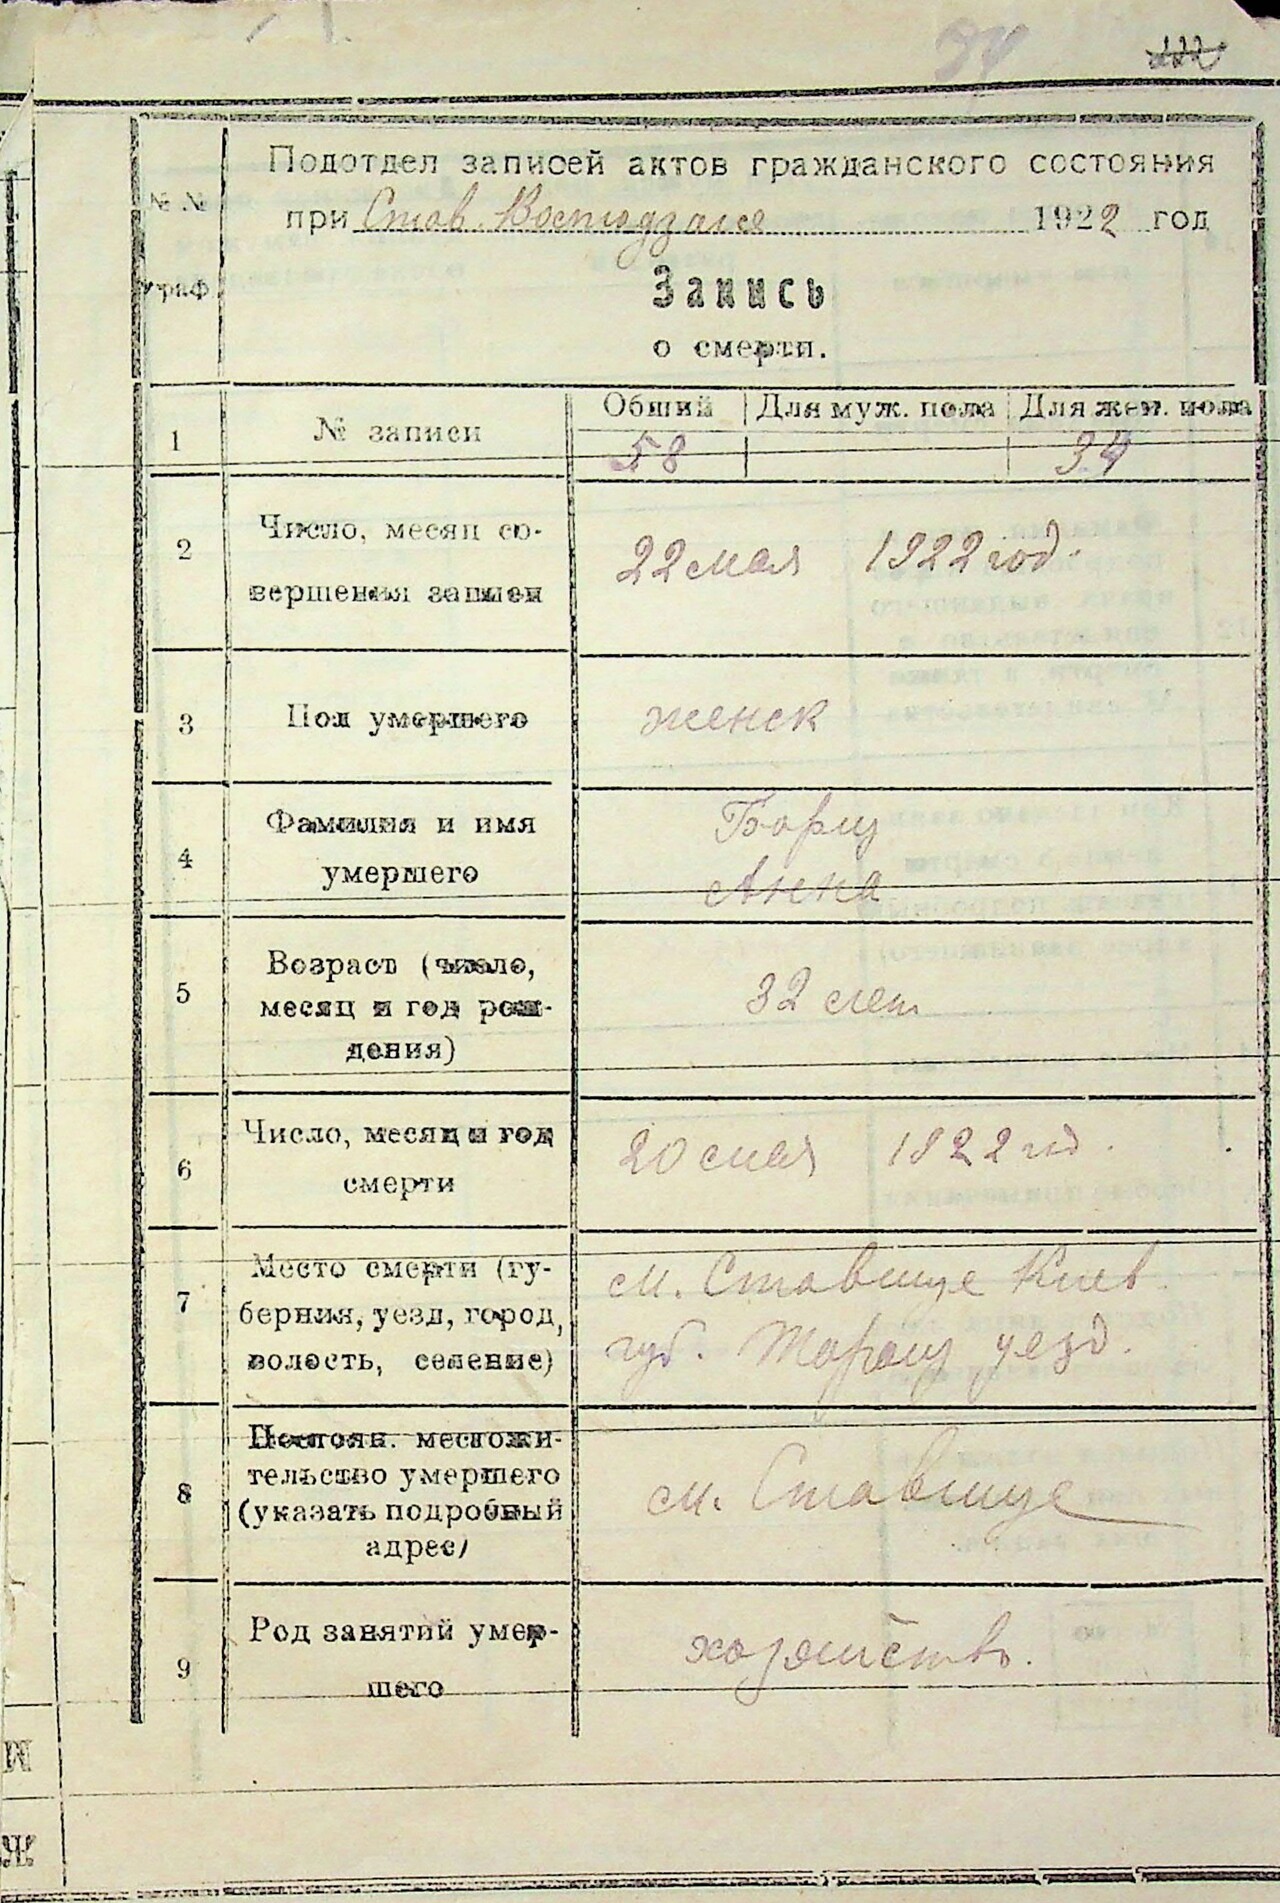 94 122
Подотдел записей актов гражданского состояния
№ №
при Став. Востодзаге 1922 год
граф
Запись
о смерти.
Общий Для муж. пола Для жен. пола
1 № записи
58 34
2 Число, месяц со-
вершения записи
22 мая 1922 год.
3 Пол умершего женск
4 Фамилия и имя
умершего
Борщ
Анна
5 Возраст (число,
месяц и год рож-
дения)
32 лет
6 Число, месяц и год
смерти
20 мая 1922 год.
7 Место смерти (гу-
берния, уезд, город,
волость, селение)
м. Ставище Киев.
губ. Таращ уезд.
8 Постоян. местожи-
тельство умершего
(указать подробный
адрес)
м. Ставище
9 Род занятий умер-
шего
хозяйство.